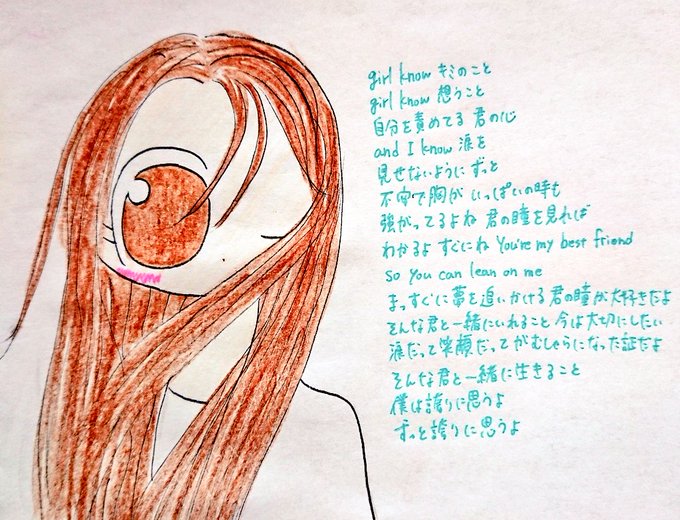 girl know キミのこと
girl know 想うこと
自分を責めてる 君の心
and I know 涙を
見せないように ずっと
不安で胸が いっぱいの時も
強がってるよね 君の瞳を見れば
わかるよ すぐにね You're my best friend
so you can lean on me
まっすぐに夢を追いかける 君の瞳が大好きだよ
そんな君と一緒にいれること 今は大切にしたい
涙だって笑顔だってがむしゃらになった証だよ
そんな君と一緒に生きること
僕は誇りに思うよ
ずっと誇りに思うよ